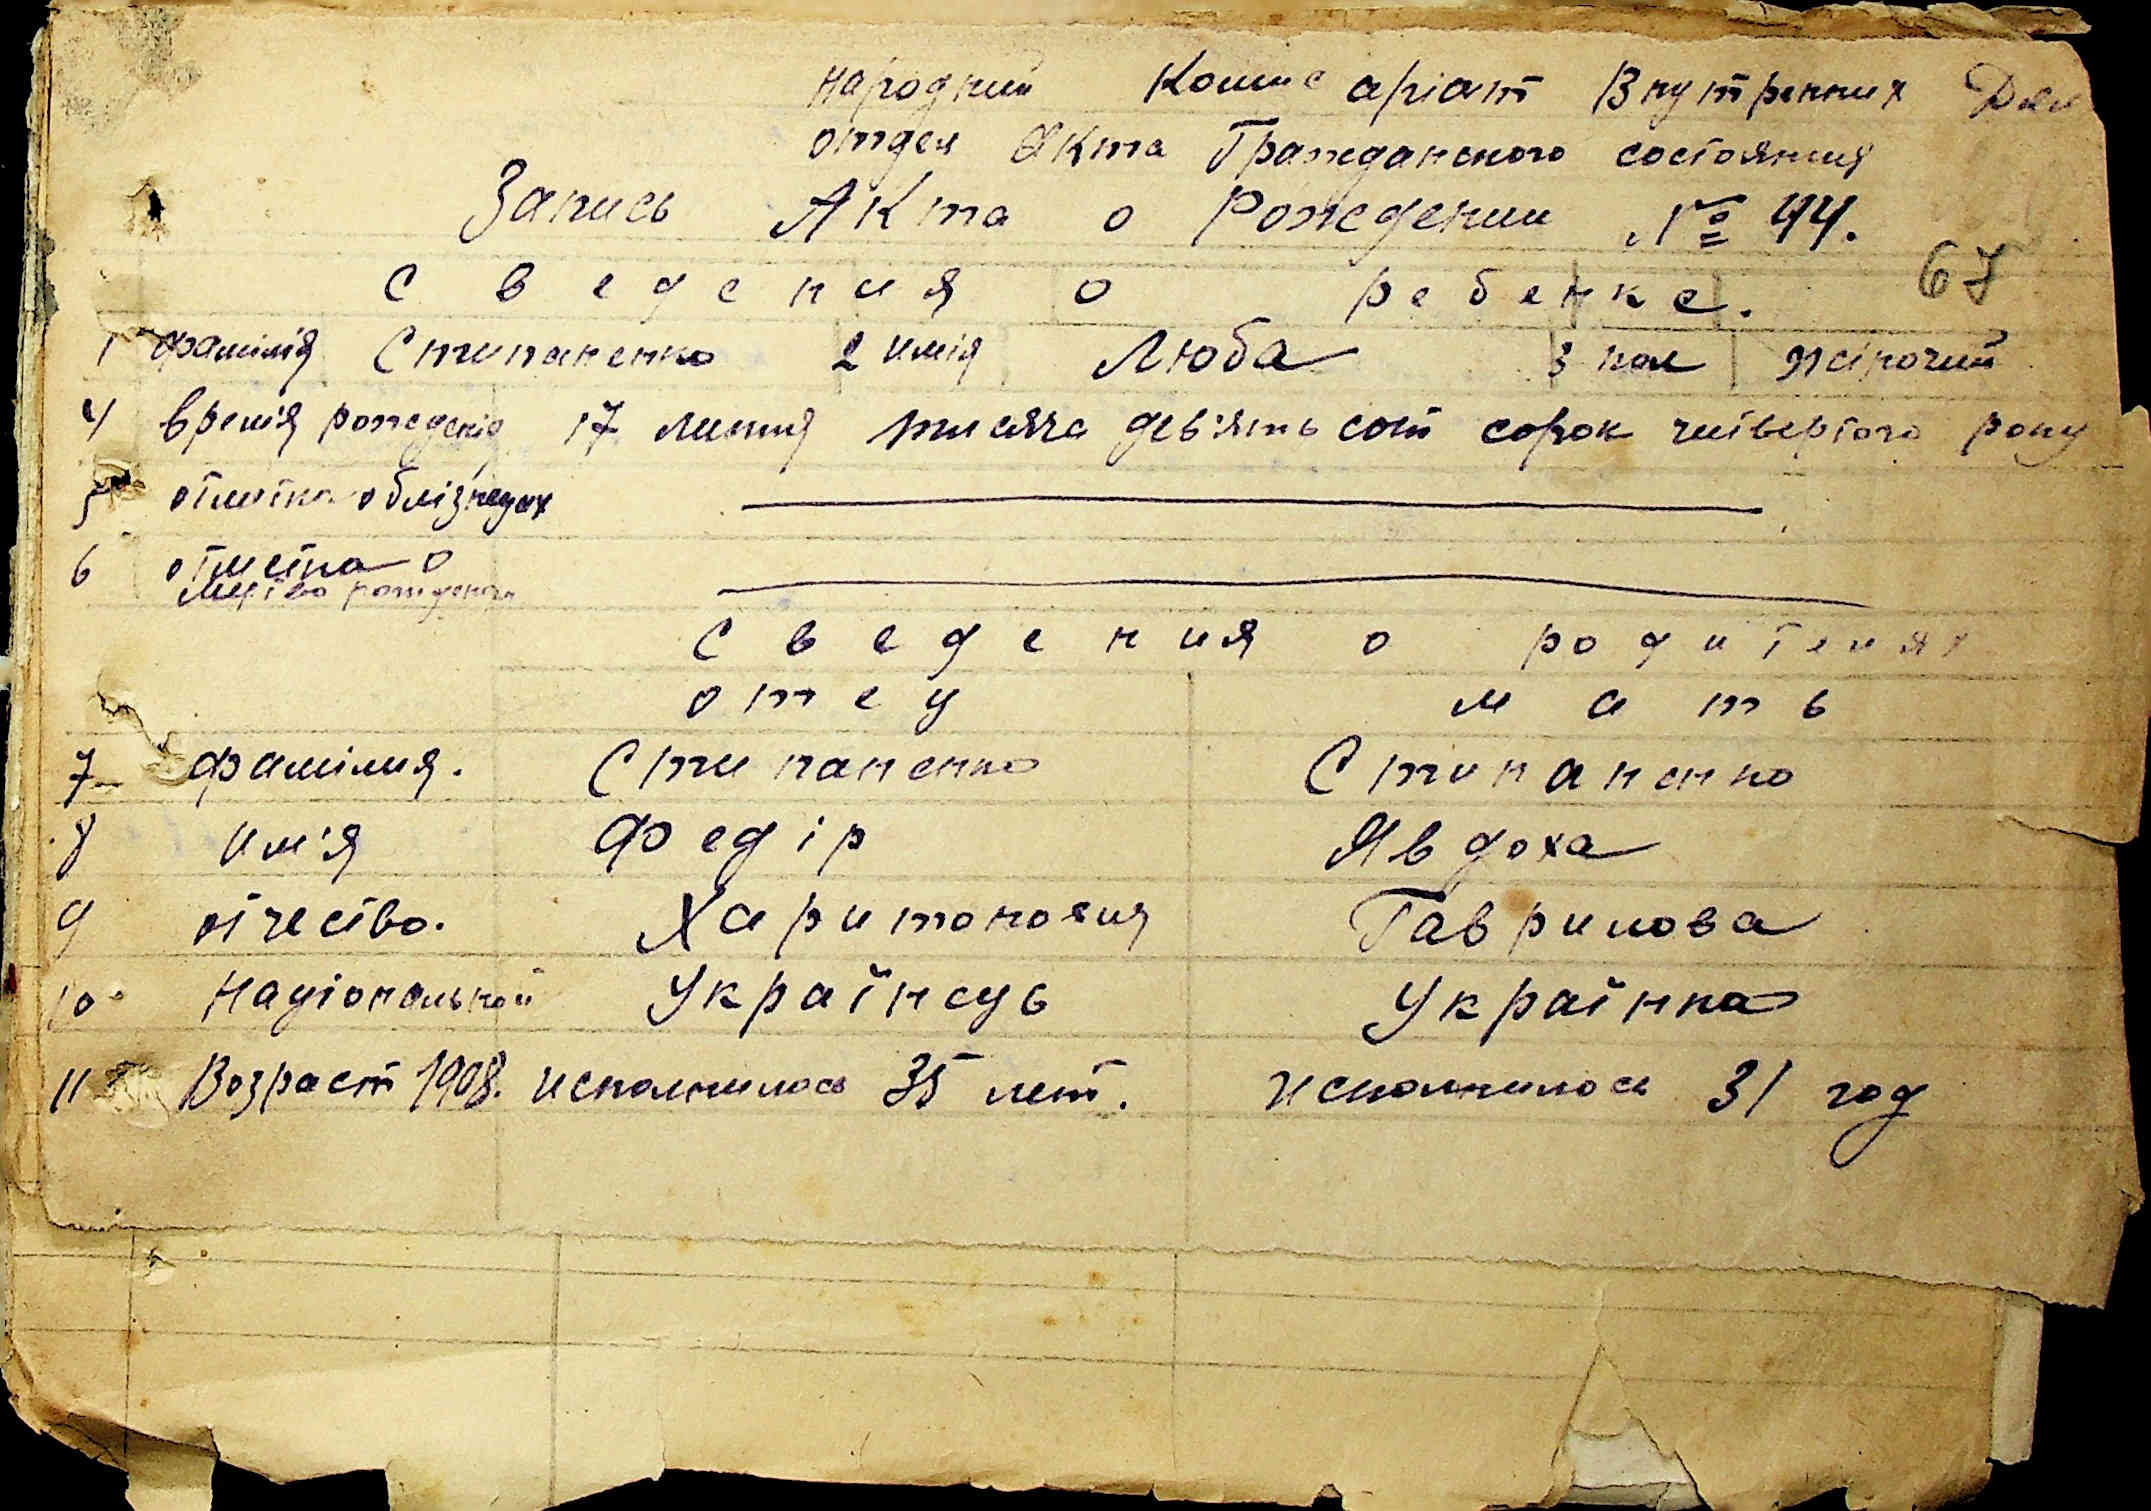 Народний Комис аріат Внутренних Дел
отдел Акта Гражданского состояния
Запись Акта о Рождении № 44.
Сведения о ребенке.
67
1 фамілія Стипаненко 2 имія Люба 3 пол жіночий
4 время рождения 17 липня тисяча дев'ять сот сорок четвертого року
5 отметка о близнецах
6 отметка о
мертво рожденом
Сведения о родителях
отец мать
7 фамілия. Стипаненко Стипаненко
8 им'я Федір Явдоха
9 отчество. Харитонович Гаврилова
10 Національной Українець Українка
11 Возраст 1908. исполнилось 35 лет. исполнилось 31 год